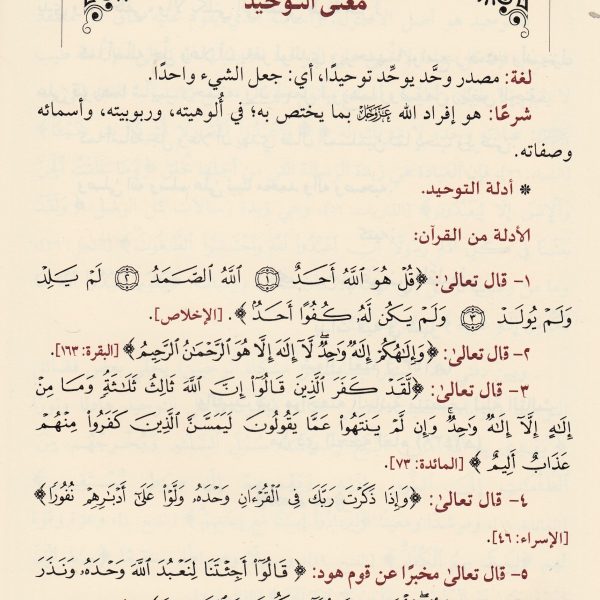 معنى التوحيد
لغة: مصدر وحَّد يوحِّد توحيدًا، أي: جعل الشيء واحدًا.
شرعًا: هو إفراد الله عَزَّوَجَلَّ بما يختص به؛ في أُلوهيته، وربوبيته، وأسمائه
وصفاته.
* أدلة التوحيد.
الأدلة من القرآن:
١- قال تعالىٰ: ﴿قُلْ هُوَ ٱللَّهُ أَحَدٌ ۝١ ٱللَّهُ ٱلصَّمَدُ ۝٢ لَمْ يَلِدْ
وَلَمْ يُولَدْ ۝٣ وَلَمْ يَكُن لَّهُۥ كُفُوًا أَحَدٌۢ﴾. [الإخلاص].
٢- قال تعالىٰ: ﴿وَإِلَٰهُكُمْ إِلَٰهٌ وَٰحِدٌ ۖ لَّآ إِلَٰهَ إِلَّا هُوَ ٱلرَّحْمَٰنُ ٱلرَّحِيمُ﴾ [البقرة: ١٦٣].
٣- قال تعالىٰ: ﴿لَّقَدْ كَفَرَ ٱلَّذِينَ قَالُوٓا۟ إِنَّ ٱللَّهَ ثَالِثُ ثَلَٰثَةٍ ۘ وَمَا مِنْ
إِلَٰهٍ إِلَّآ إِلَٰهٌ وَٰحِدٌ ۚ وَإِن لَّمْ يَنتَهُوا۟ عَمَّا يَقُولُونَ لَيَمَسَّنَّ ٱلَّذِينَ كَفَرُوا۟ مِنْهُمْ
عَذَابٌ أَلِيمٌ﴾ [المائدة: ٧٣].
٤- قال تعالىٰ: ﴿وَإِذَا ذَكَرْتَ رَبَّكَ فِى ٱلْقُرْءَانِ وَحْدَهُۥ وَلَّوْا۟ عَلَىٰٓ أَدْبَٰرِهِمْ نُفُورًا﴾
[الإسراء: ٤٦].
٥- قال تعالىٰ مخبرًا عن قوم هود: ﴿قَالُوٓا۟ أَجِئْتَنَا لِنَعْبُدَ ٱللَّهَ وَحْدَهُۥ وَنَذَرَ